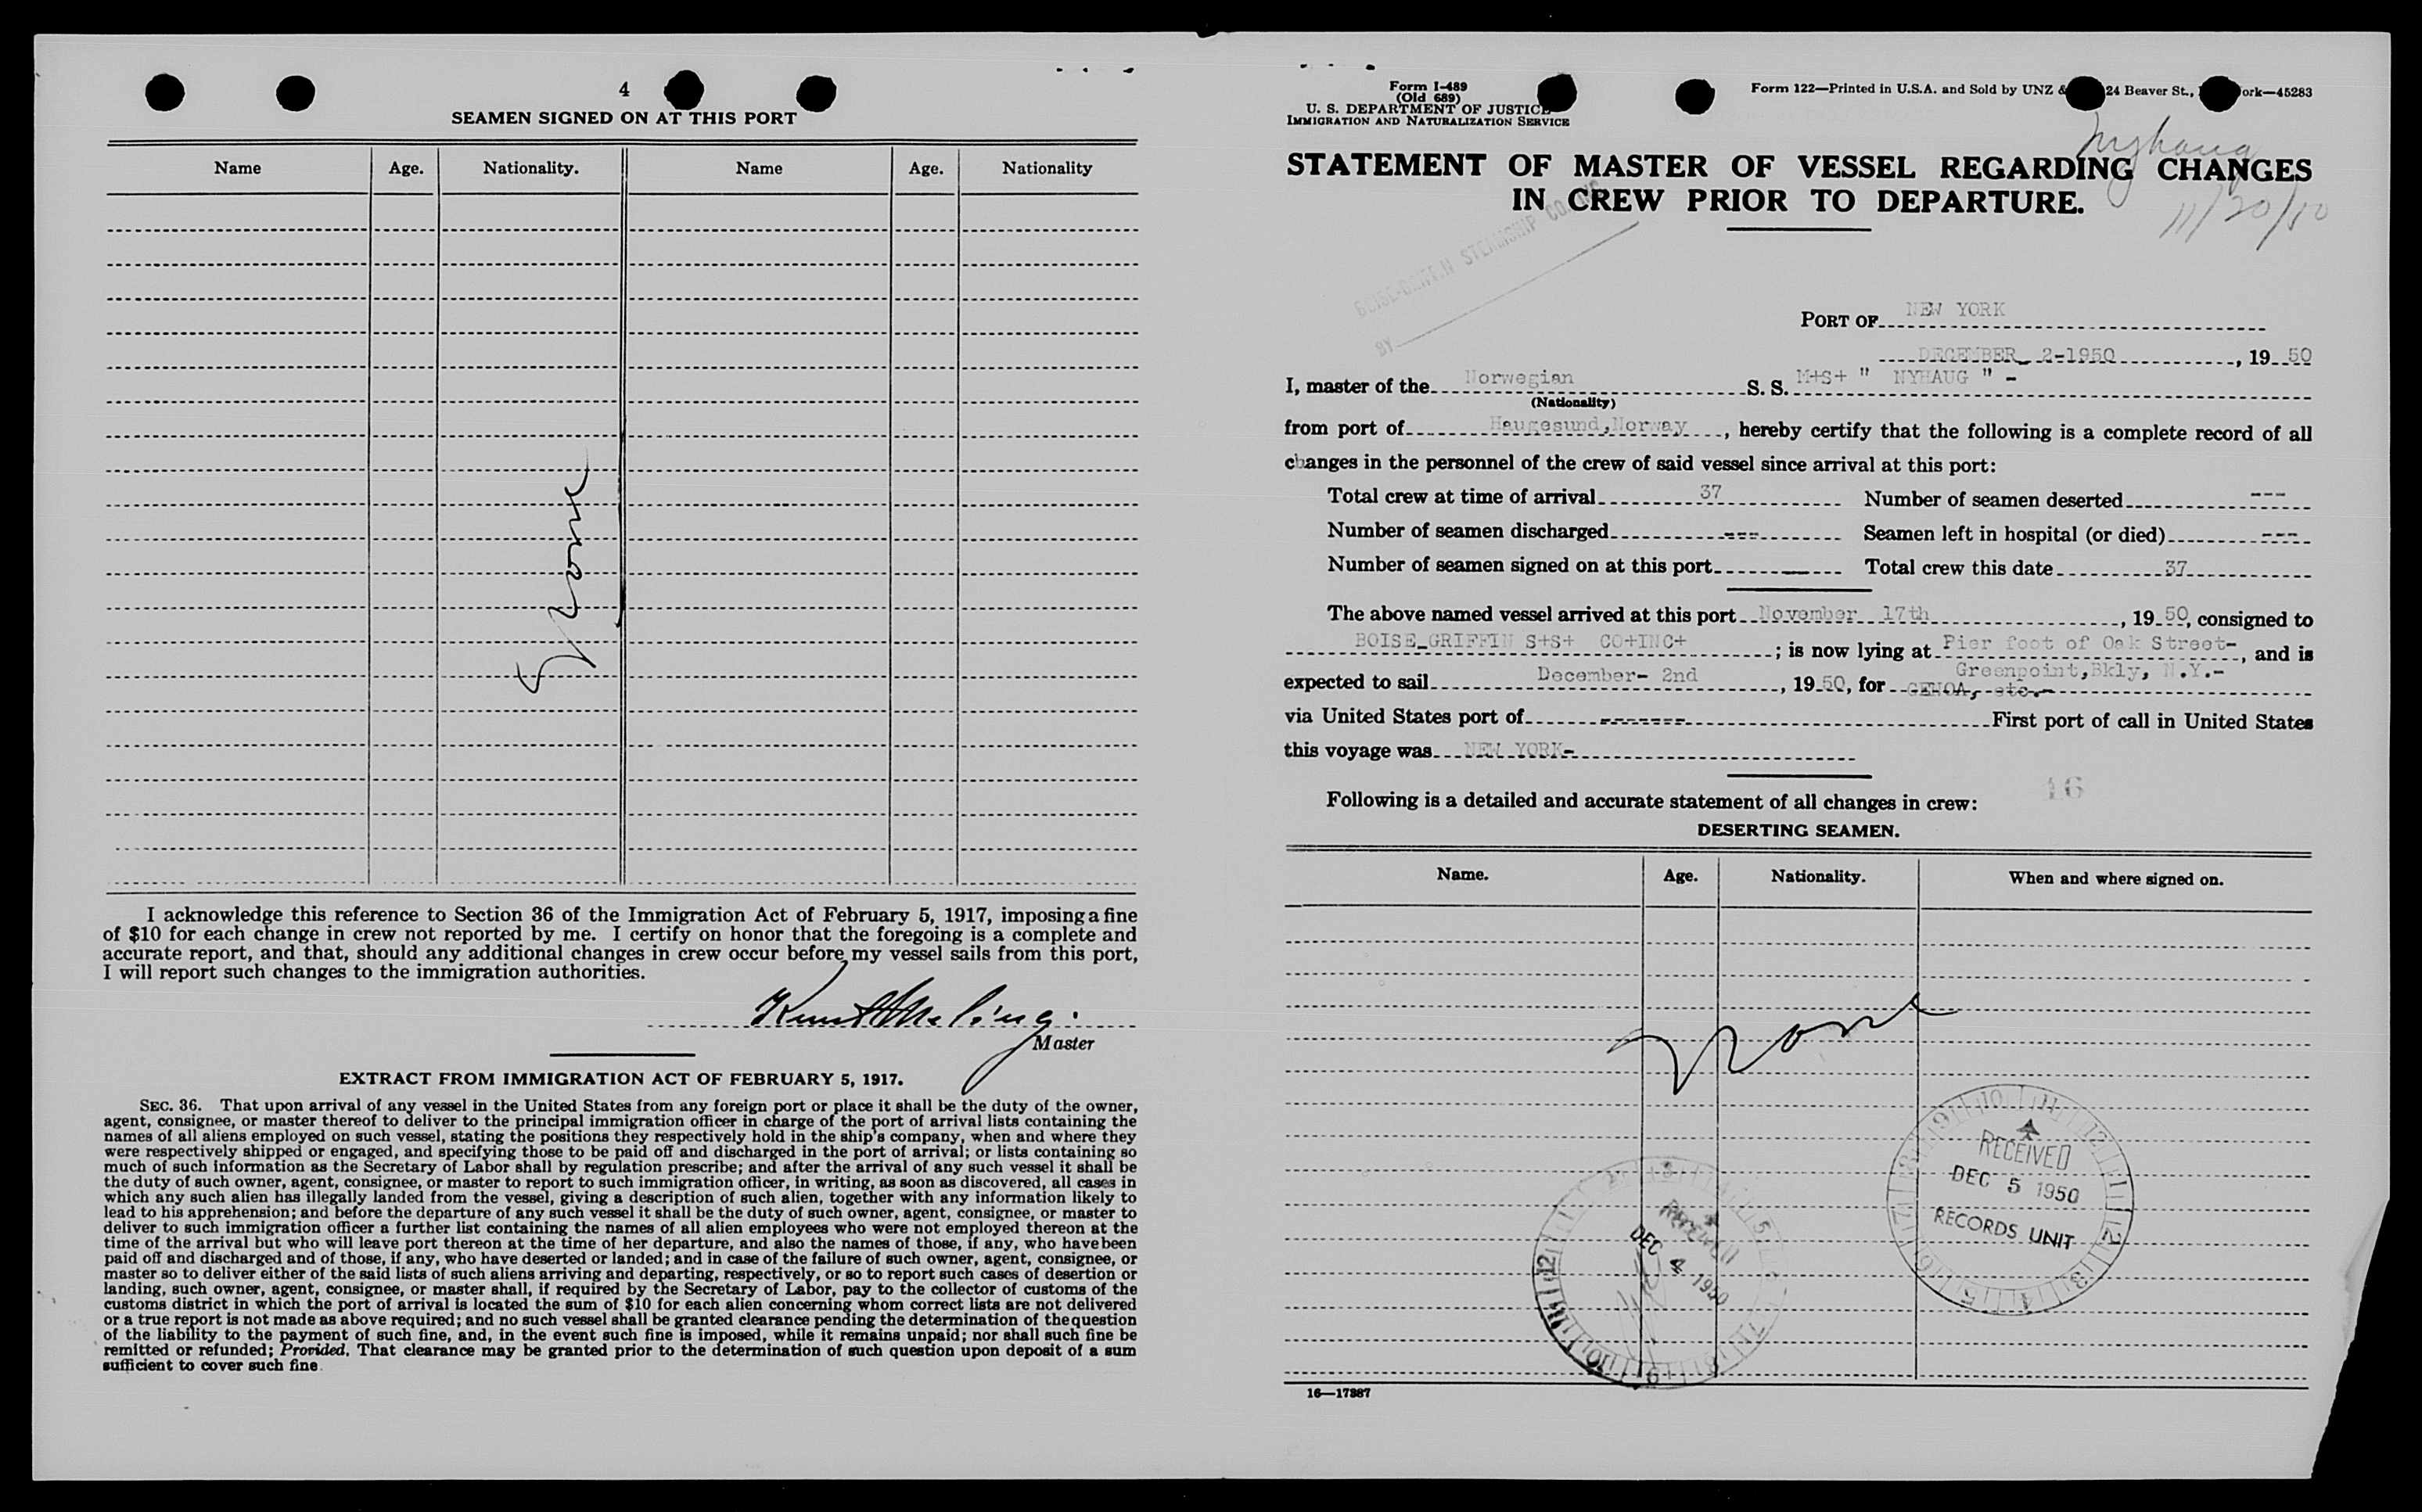 4
SEAMEN SIGNED ON AT THIS PORT
Name Age. Nationality. Name Age. Nationality
None
I acknowledge this reference to Section 36 of the Immigration Act of February 5, 1917, imposing a fine
of $10 for each change in crew not reported by me. I certify on honor that the foregoing is a complete and
accurate report, and that, should any additional changes in crew occur before my vessel sails from this port,
I will report such changes to the immigration authorities.
Knut Meling.
Master
EXTRACT FROM IMMIGRATION ACT OF FEBRUARY 5, 1917.
SEC. 36. That upon arrival of any vessel in the United States from any foreign port or place it shall be the duty of the owner,
agent, consignee, or master thereof to deliver to the principal immigration officer in charge of the port of arrival lists containing the
names of all aliens employed on such vessel, stating the positions they respectively hold in the ship's company, when and where they
were respectively shipped or engaged, and specifying those to be paid off and discharged in the port of arrival; or lists containing so
much of such information as the Secretary of Labor shall by regulation prescribe; and after the arrival of any such vessel it shall be
the duty of such owner, agent, consignee, or master to report to such immigration officer, in writing, as soon as discovered, all cases in
which any such alien has illegally landed from the vessel, giving a description of such alien, together with any information likely to
lead to his apprehension; and before the departure of any such vessel it shall be the duty of such owner, agent, consignee, or master to
deliver to such immigration officer a further list containing the names of all alien employees who were not employed thereon at the
time of the arrival but who will leave port thereon at the time of her departure, and also the names of those, if any, who have been
paid off and discharged and of those, if any, who have deserted or landed; and in case of the failure of such owner, agent, consignee, or
master so to deliver either of the said lists of such aliens arriving and departing, respectively, or so to report such cases of desertion or
landing, such owner, agent, consignee, or master shall, if required by the Secretary of Labor, pay to the collector of customs of the
customs district in which the port of arrival is located the sum of $10 for each alien concerning whom correct lists are not delivered
or a true report is not made as above required; and no such vessel shall be granted clearance pending the determination of the question
of the liability to the payment of such fine, and, in the event such fine is imposed, while it remains unpaid; nor shall such fine be
remitted or refunded; Provided, That clearance may be granted prior to the determination of such question upon deposit of a sum
sufficient to cover such fine.
Form I-489
(Old 689)
U. S. DEPARTMENT OF JUSTICE
IMMIGRATION AND NATURALIZATION SERVICE
Form 122—Printed in U.S.A. and Sold by UNZ & 24 Beaver St., ork—45283
Nyhaug
11/20/50
STATEMENT OF MASTER OF VESSEL REGARDING CHANGES
IN CREW PRIOR TO DEPARTURE.
BOISE-GRIFFIN STEAMSHIP CO. INC.
BY
PORT OF NEW YORK
DECEMBER 2-1950, 19 50
I, master of the Norwegian S. S. M+S+ " NYHAUG " -
(Nationality)
from port of Haugesund, Norway, hereby certify that the following is a complete record of all
changes in the personnel of the crew of said vessel since arrival at this port:
Total crew at time of arrival 37 Number of seamen deserted ---
Number of seamen discharged --- Seamen left in hospital (or died) ---
Number of seamen signed on at this port --- Total crew this date 37
The above named vessel arrived at this port November 17th, 19 50, consigned to
BOISE-GRIFFIN S+S+ CO+INC+; is now lying at Pier foot of Oak Street-, and is
Greenpoint, Bkly, N.Y.-
expected to sail December- 2nd, 19 50, for GENOA, etc.-
via United States port of ------- First port of call in United States
this voyage was NEW YORK-
16
Following is a detailed and accurate statement of all changes in crew:
DESERTING SEAMEN.
Name. Age. Nationality. When and where signed on.
None
RECEIVED
DEC 5 1950
RECORDS UNIT
RECEIVED
DEC 4 1950
16—17887